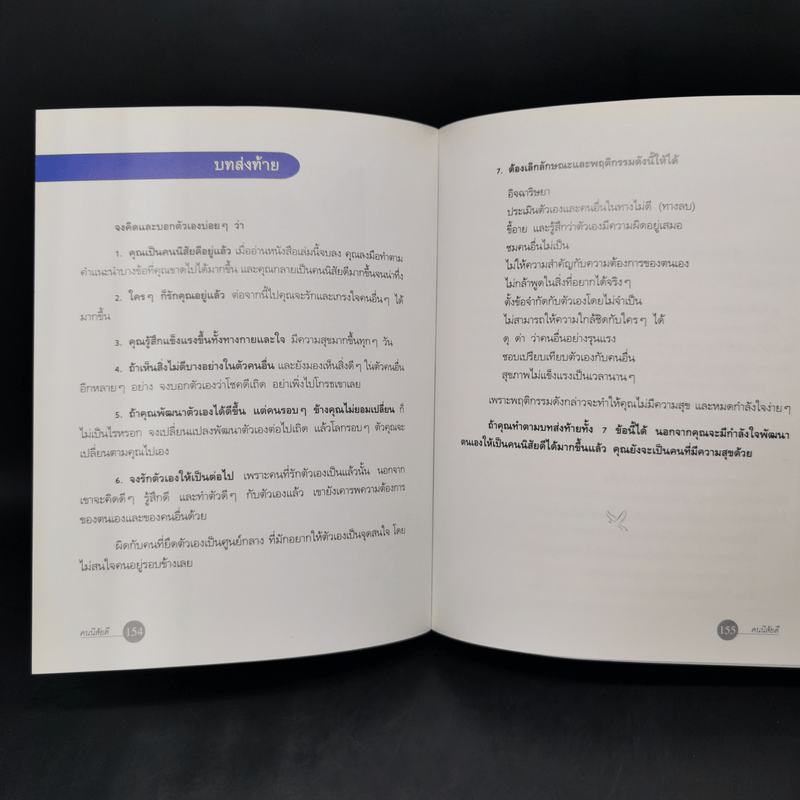 บทส่งท้าย
จงคิดและบอกตัวเองบ่อยๆ ว่า
1. คุณเป็นคนนิสัยดีอยู่แล้ว เมื่ออ่านหนังสือเล่มนี้จบลง คุณลงมือทำตาม
คำแนะนำบางข้อที่คุณขาดไปได้มากขึ้น และคุณกลายเป็นคนนิสัยดีมากขึ้นจนน่าทึ่ง
2. ใครๆ ก็รักคุณอยู่แล้ว ต่อจากนี้ไปคุณจะรักและเกรงใจคนอื่นๆ ได้
มากขึ้น
3. คุณรู้สึกแข็งแรงขึ้นทั้งทางกายและใจ มีความสุขมากขึ้นทุกๆ วัน
4. ถ้าเห็นสิ่งไม่ดีบางอย่างในตัวคนอื่น และยังมองเห็นสิ่งดีๆ ในตัวคนอื่น
อีกหลายๆ อย่าง จงบอกตัวเองว่าโชคดีเถิด อย่าเพิ่งไปโกรธเขาเลย
5. ถ้าคุณพัฒนาตัวเองได้ดีขึ้น แต่คนรอบๆ ข้างคุณไม่ยอมเปลี่ยน ก็
ไม่เป็นไรหรอก จงเปลี่ยนแปลงพัฒนาตัวเองต่อไปเถิด แล้วโลกรอบๆ ตัวคุณจะ
เปลี่ยนตามคุณไปเอง
6. จงรักตัวเองให้เป็นต่อไป เพราะคนที่รักตัวเองเป็นแล้วนั้น นอกจาก
เขาจะคิดดีๆ รู้สึกดี และทำตัวดีๆ กับตัวเองแล้ว เขายังเคารพความต้องการ
ของตนเองและของคนอื่นด้วย
ผิดกับคนที่ยึดตัวเองเป็นศูนย์กลาง ที่มักอยากให้ตัวเองเป็นจุดสนใจ โดย
ไม่สนใจคนอยู่รอบข้างเลย
คนนิสัยดี 154
7. ต้องเลิกลักษณะและพฤติกรรมดังนี้ให้ได้
อิจฉาริษยา
ประเมินตัวเองและคนอื่นในทางไม่ดี (ทางลบ)
ขี้อาย และรู้สึกว่าตัวเองมีความผิดอยู่เสมอ
ชมคนอื่นไม่เป็น
ไม่ให้ความสำคัญกับความต้องการของตนเอง
ไม่กล้าพูดในสิ่งที่อยากได้จริงๆ
ตั้งข้อจำกัดกับตัวเองโดยไม่จำเป็น
ไม่สามารถให้ความใกล้ชิดกับใครๆ ได้
ดุ ด่า ว่าคนอื่นอย่างรุนแรง
ชอบเปรียบเทียบตัวเองกับคนอื่น
สุขภาพไม่แข็งแรงเป็นเวลานานๆ
เพราะพฤติกรรมดังกล่าวจะทำให้คุณไม่มีความสุข และหมดกำลังใจง่ายๆ
ถ้าคุณทำตามบทส่งท้ายทั้ง 7 ข้อนี้ได้ นอกจากคุณจะมีกำลังใจพัฒนา
ตนเองให้เป็นคนนิสัยดีได้มากขึ้นแล้ว คุณยังจะเป็นคนที่มีความสุขด้วย
155 คนนิสัยดี